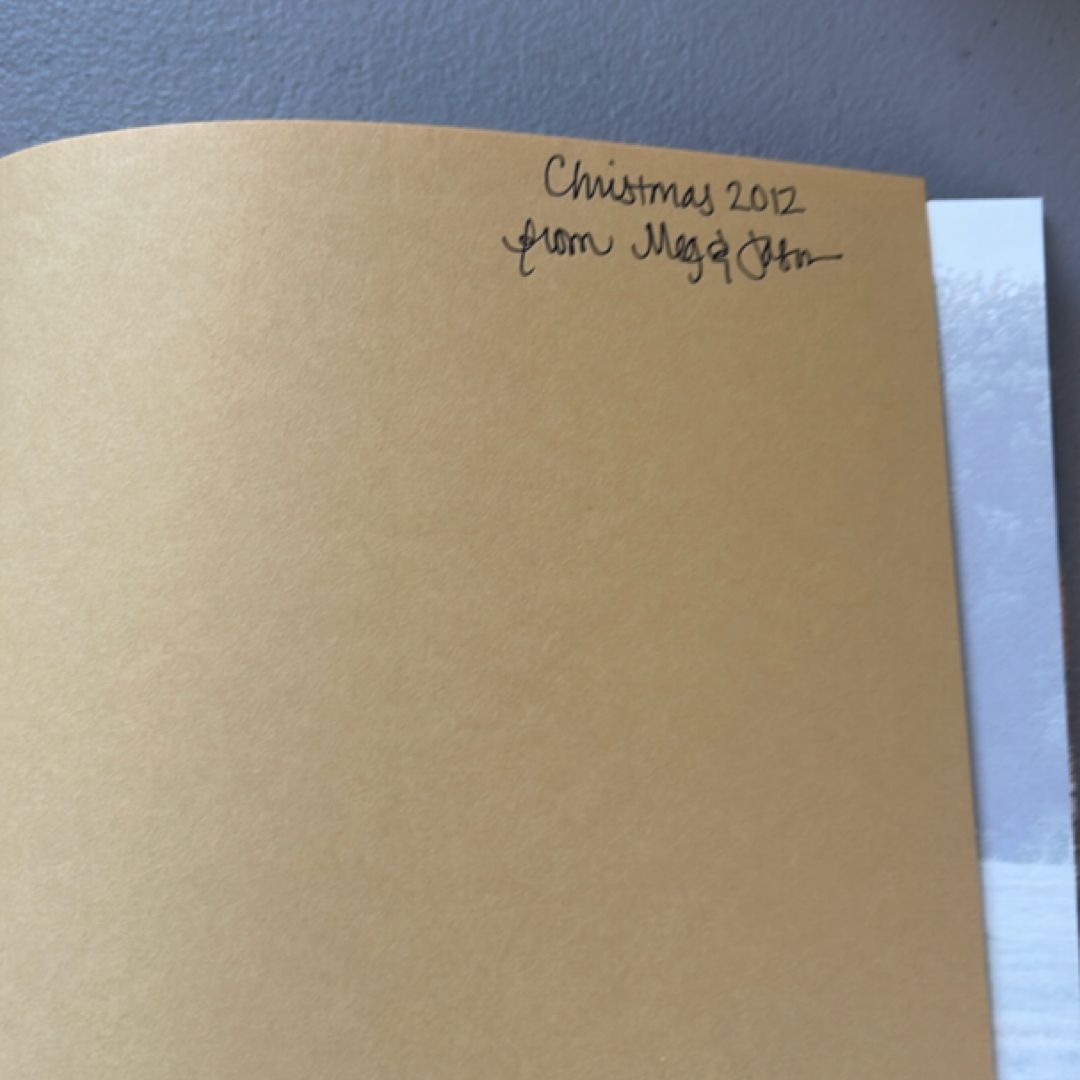 Christmas 2012
from Meg & Jason